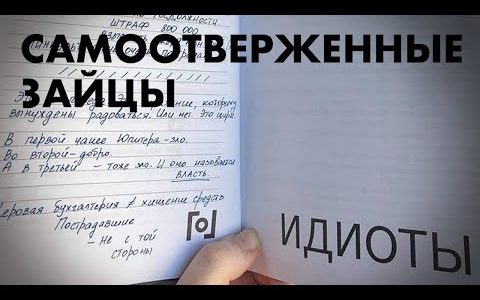 ГОСДОЛЖНОСТИ
ШТРАФ 800 000
САМООТВЕРЖЕННЫЕ
ЗАЙЦЫ
которому
вынуждены радоваться. Или нет. Это цирк
В первой чаше Юпитера - зло.
Во второй - добро.
А в третьей - тоже зло. И оно называется
власть.
Черовая бухгалтерия ≠ хищение средств
Пострадавшие
- Не с той
стороны
ИДИОТЫ